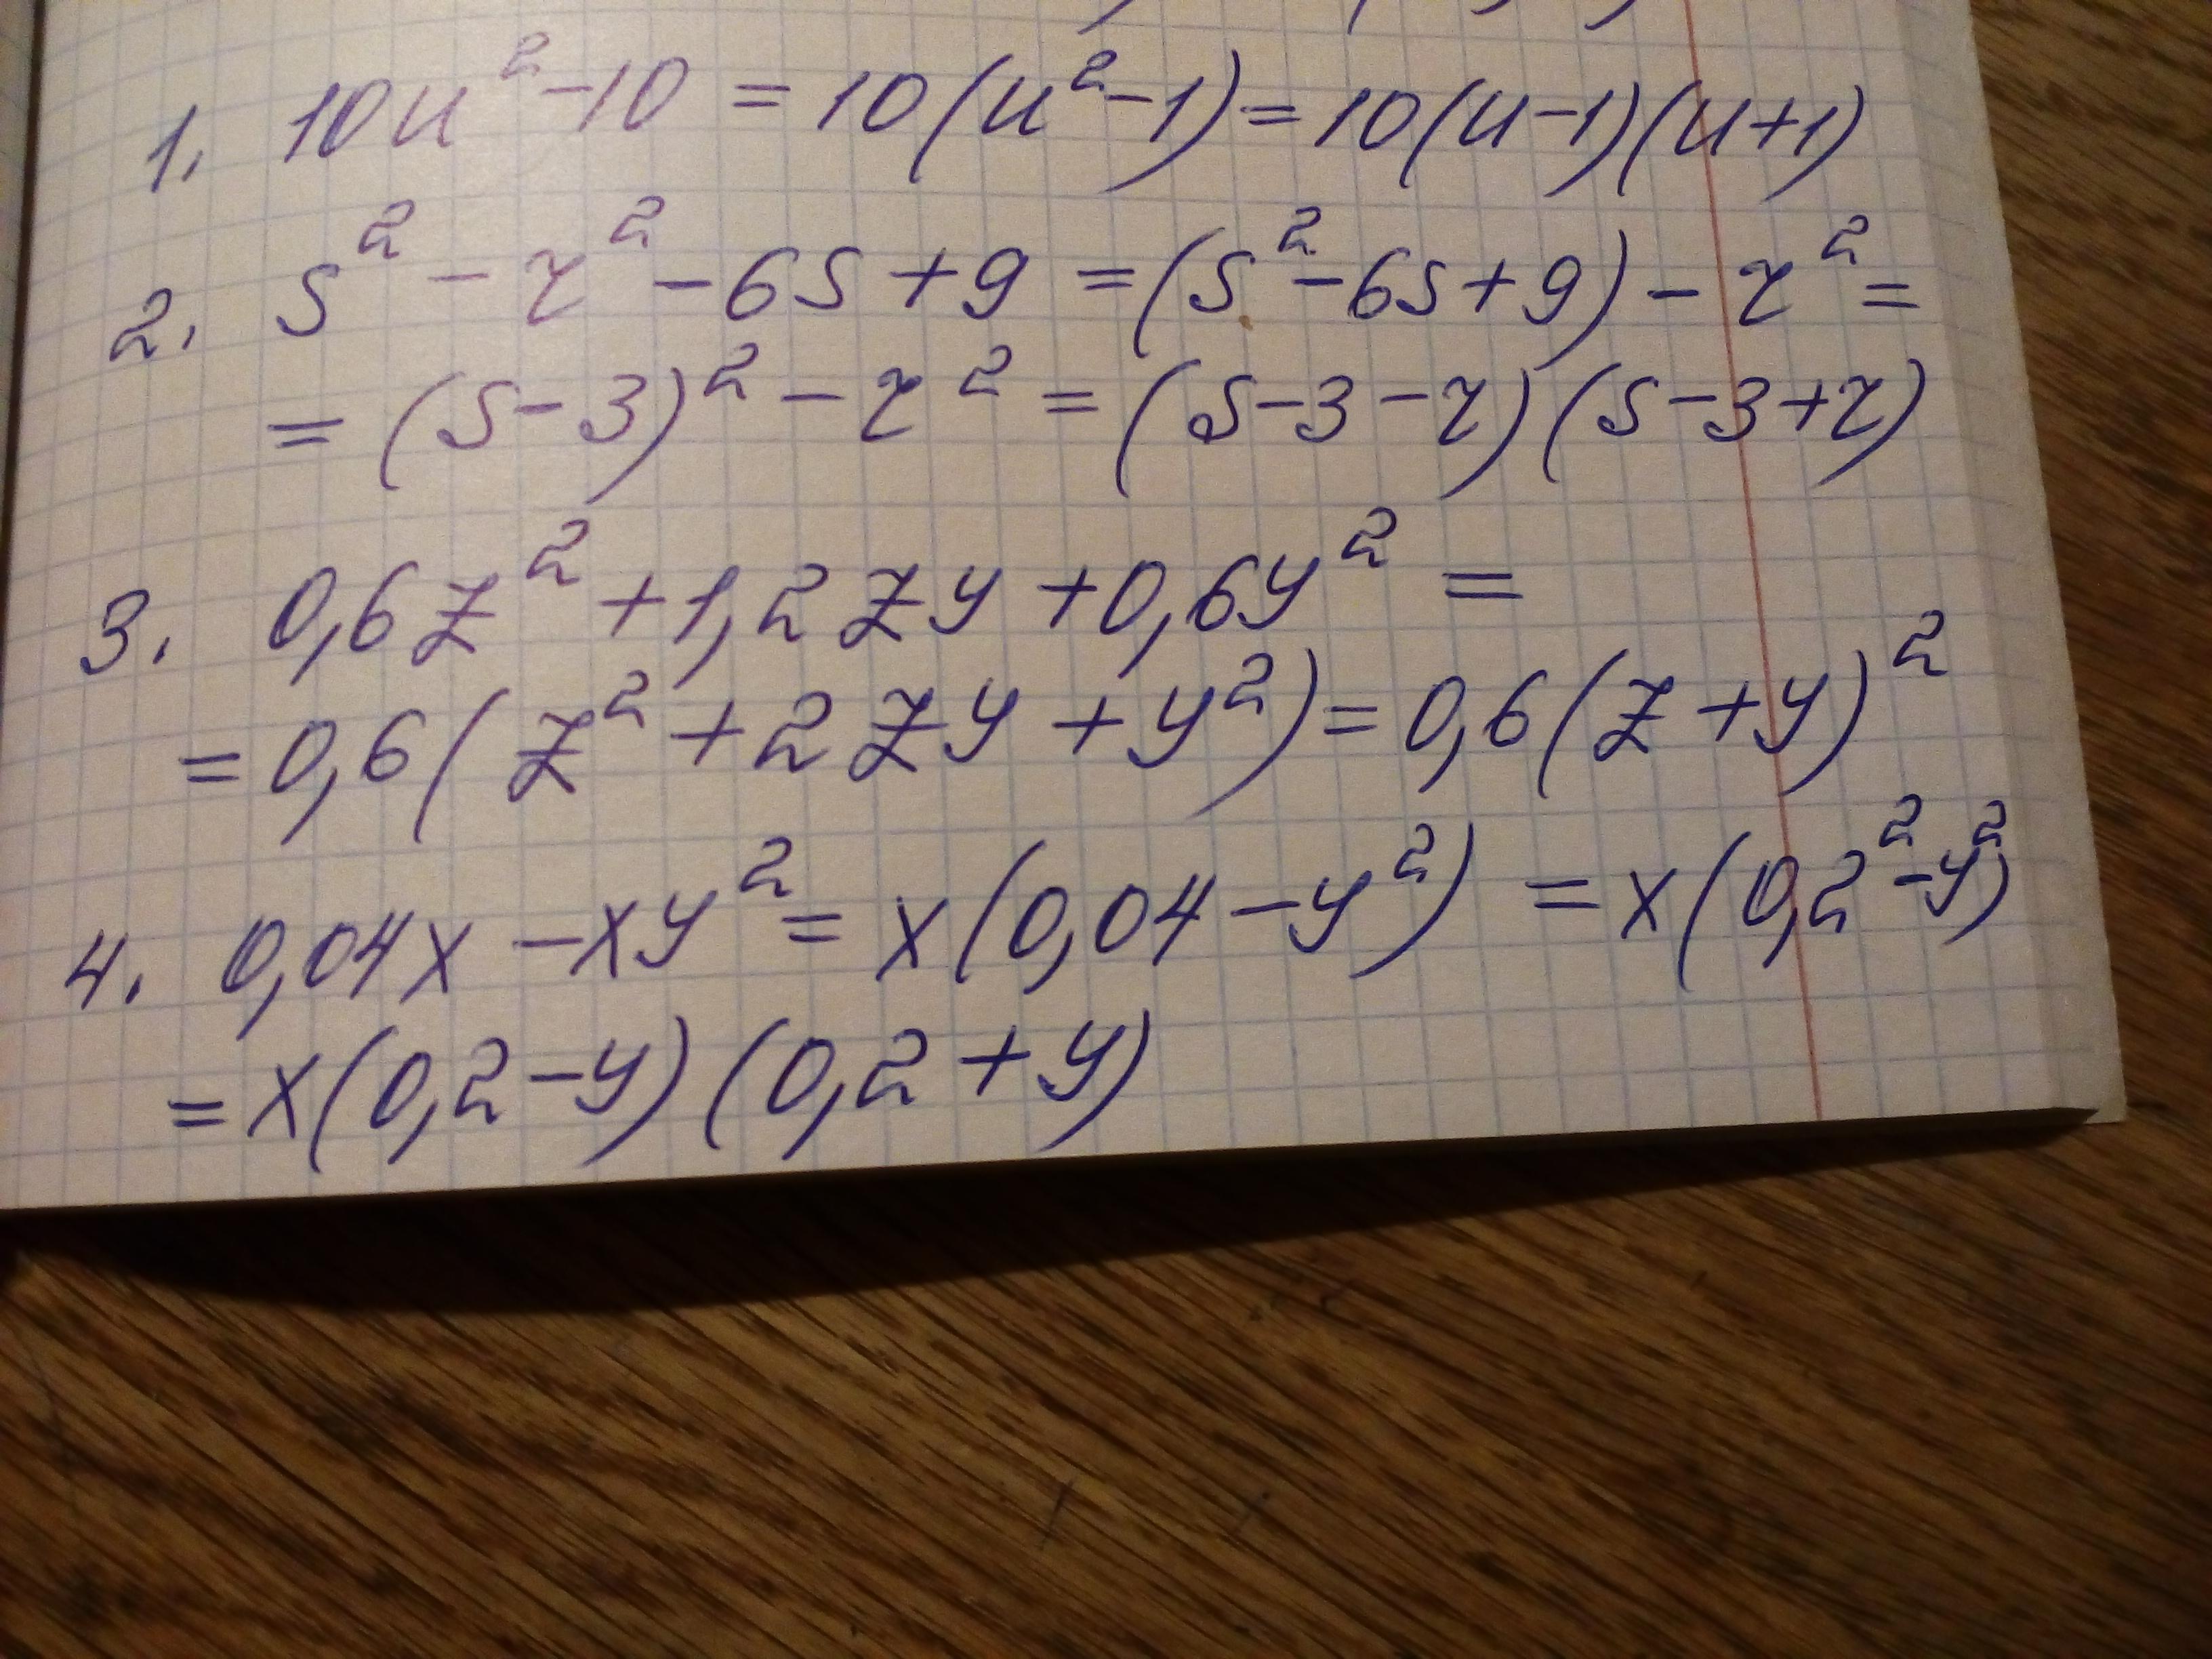 1. 10u² - 10 = 10(u² - 1) = 10(u - 1)(u + 1)
2. s² - r² - 6s + 9 = (s² - 6s + 9) - r² =
= (s - 3)² - r² = (s - 3 - r)(s - 3 + r)
3. 0,6z² + 1,2zy + 0,6y² =
= 0,6(z² + 2zy + y²) = 0,6(z + y)²
4. 0,04x - xy² = x(0,04 - y²) = x(0,2² - y²)
= x(0,2 - y)(0,2 + y)